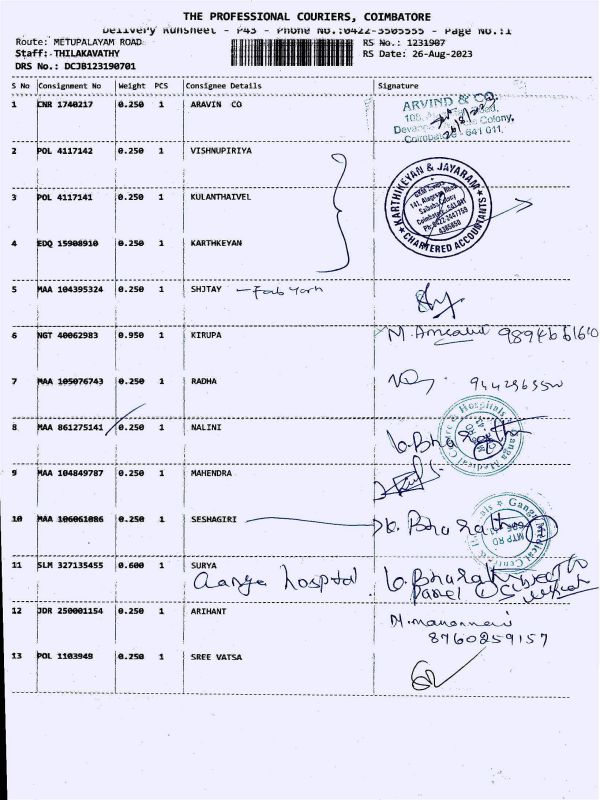 THE PROFESSIONAL COURIERS, COIMBATORE
Delivery Runsheet - P43 - Phone No.:0422-3505555 - Page No.:1
Route: METUPALAYAM ROAD RS No.: 1231907
Staff: THILAKAVATHY RS Date: 26-Aug-2023
DRS No.: DCJB123190701
S No Consignment No Weight PCS Consignee Details Signature
1 CNR 1740217 0.250 1 ARAVIN CO
ARVIND & CO
Colony,
641 011.
2 POL 4117142 0.250 1 VISHNUPIRIYA
3 POL 4117141 0.250 1 KULANTHAIVEL
KARTHIKEYAN & JAYARAM
CHARTERED ACCOUNTANTS
4 EDQ 15908910 0.250 1 KARTHKEYAN
5 MAA 104395324 0.250 1 SHJTAY - Fab York
6 NGT 40062983 0.950 1 KIRUPA
7 MAA 105076743 0.250 1 RADHA
8 MAA 861275141 0.250 1 NALINI
Ganga Medical Centre & Hospitals
9 MAA 104849787 0.250 1 MAHENDRA
10 MAA 106061086 0.250 1 SESHAGIRI
MTP RD
11 SLM 327135455 0.600 1 SURYA
hospital
12 JDR 250001154 0.250 1 ARIHANT
8760259157
13 POL 1103949 0.250 1 SREE VATSA